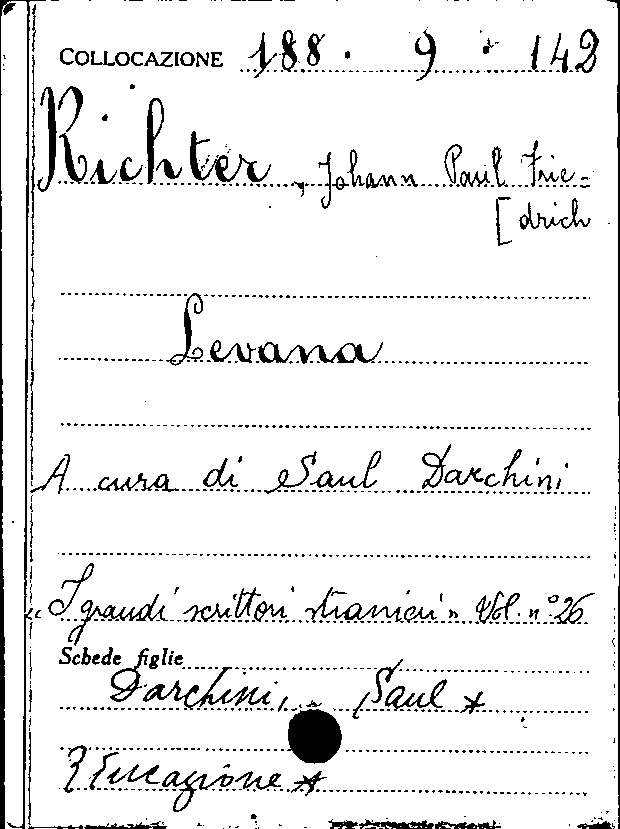 COLLOCAZIONE 188 . 9 . 142
Richter, Johann Paul Frie=
[drich
Levana
A cura di Saul Darchini
"I grandi scrittori stranieri" Vol. n° 26
Schede figlie
Darchini, Saul *
Educazione *